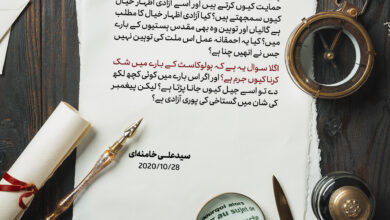 حمایت کیوں کرتے ہیں اور اسے آزادی اظہار خیال
کیوں سمجھتے ہیں؟ کیا آزادی اظہار خیال کا مطلب
ہے گالیاں اور توہین وہ بھی مقدس ہستیوں کے بارے
میں؟ کیا یہ احمقانہ عمل اس ملت کی توہین نہیں
جس نے انھیں چنا ہے؟
اگلا سوال یہ ہے کہ ہولوکاسٹ کے بارے میں شک
کرنا کیوں جرم ہے؟ اور اگر اس بارے میں کوئی کچھ لکھ
دی تو اسے جیل کیوں جانا پڑتا ہے؟ لیکن پیغمبر
کی شان میں گستاخی کی پوری آزادی ہے؟
سیدعلی خامنه‌ای
2020/10/28
au sujet